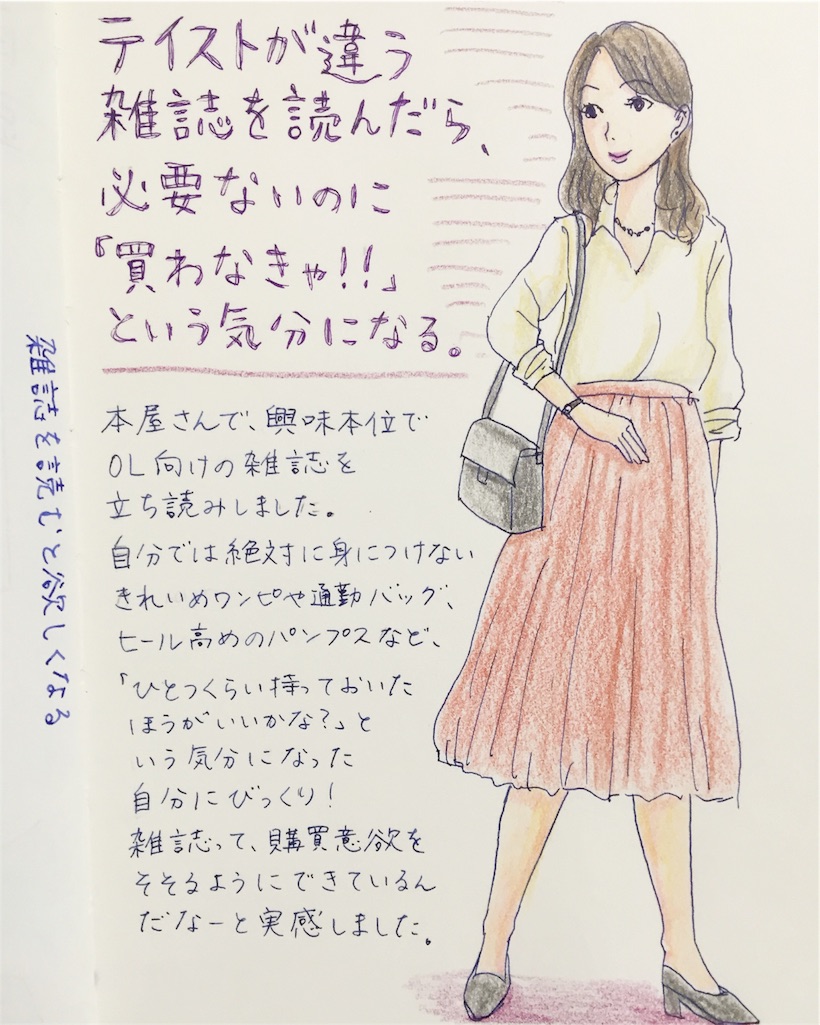 テイストが違う
雑誌を読んだら、
必要ないのに
「買わなきゃ!!」
という気分になる。
本屋さんで、興味本位で
OL向けの雑誌を
立ち読みしました。
自分では絶対に身につけない
きれいめワンピや通勤バッグ、
ヒール高めのパンプスなど、
「ひとつくらい持っておいた
ほうがいいかな?」と
いう気分になった
自分にびっくり!
雑誌って、購買意欲を
そそるようにできているん
だなーと実感しました。
雑誌を読むと欲しくなる